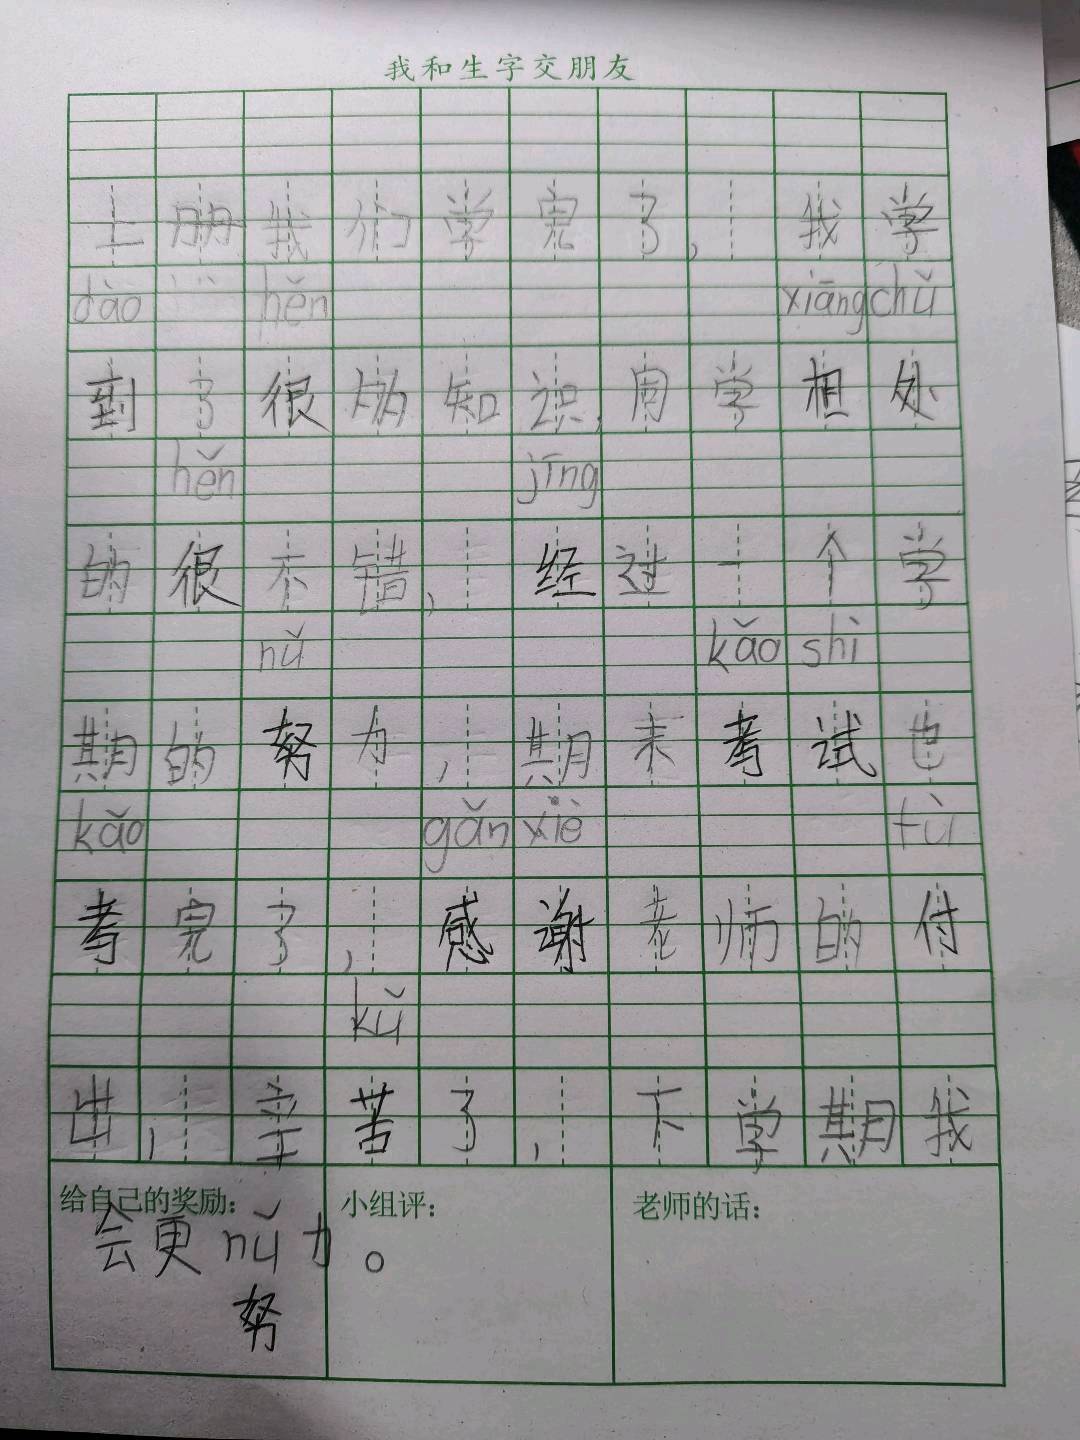 我和生字交朋友
上朋我们学完了，我学
dào hěn xiāng chǔ
到了很多知识，同学相处
hěn jīng
的很不错，经过一个学
nǔ kǎo shì
期的努力，期末考试也
kǎo gǎn xiè fù
考完了，感谢老师的付
kǔ
出，辛苦了，下学期我
给自己的奖励： 小组评： 老师的话：
会更nǔ力。
努